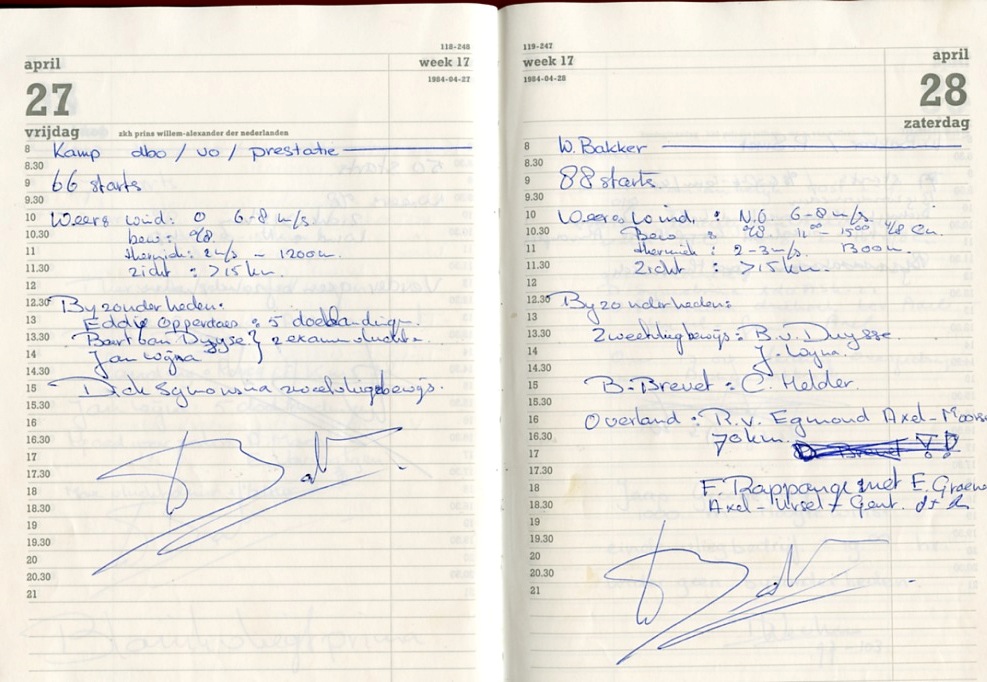 118-248
april
week 17
1984-04-27
27
vrijdag
zkh prins willem-alexander der nederlanden
8 Kamp dbo / vo / prestatie
8.30
9 66 starts
9.30
10 Weers wind: O 6-8 m/s
10.30 bew: /8.
11 thermiek: 2 m/s - 1200 m.
11.30 zicht : >15 km.
12
12.30 Byzonderheden:
13 Eddie : 5 doellandingen.
13.30 Bart van Duyse } 2 examenvluchten
14 Jan Wijna
14.30
15 Dick zweefvliegbewijs.
15.30
16
16.30
17
17.30
18
18.30
19
19.30
20
20.30
21
119-247
april
week 17
1984-04-28
28
zaterdag
8 W. Bakker
8.30
9 88 starts
9.30
10 Weers wind : N.O. 6-8 m/s.
10.30 Bew : /8. 11⁰⁰ - 15⁰⁰ /8 Cu.
11 thermiek : 2-3 m/s. 1300 m.
11.30 Zicht : >15 km.
12
12.30 Byzonderheden:
13
13.30 Zweefvliegbewijs : B. v. Duysse
14 J. Wijna.
14.30
15 B-Brevet : C. Helder.
15.30
16 Overland : R. v. Egmond Axel-
16.30 70 km.
17
17.30
18 F. Rappange met E.
18.30 Axel - Ursel + Gent.
19
19.30
20
20.30
21